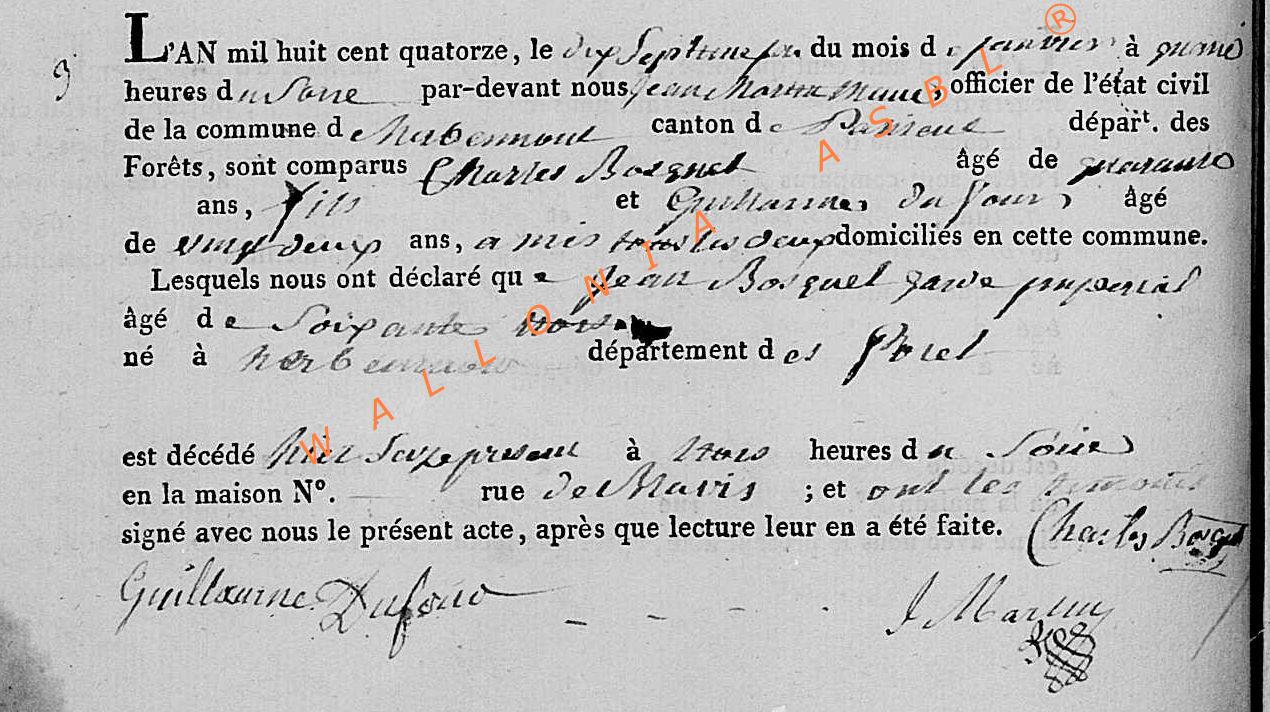 3
L'AN mil huit cent quatorze, le dix Septieme jr. du mois de janvier à quatre
heures du Soire par-devant nous jean Martin officier de l'état civil
de la commune de Herbeumont canton de Paliseul départ. des
Forêts, sont comparus Charles Bosquet âgé de quarante
ans, fils et Guillaume du four, âgé
de vingt deux ans, amis tous les deux domiciliés en cette commune.
Lesquels nous ont déclaré que jean Bosquet garde imperial
âgé de Soixante trois
né à herbeumont département des foret
est décédé hier Seize present à trois heures du Soire
en la maison N°. rue de Maris ; et ont les temoins
signé avec nous le présent acte, après que lecture leur en a été faite. Charles Bosquet
Guillaume Dufour J Martin
WALLONIA ASBL ®